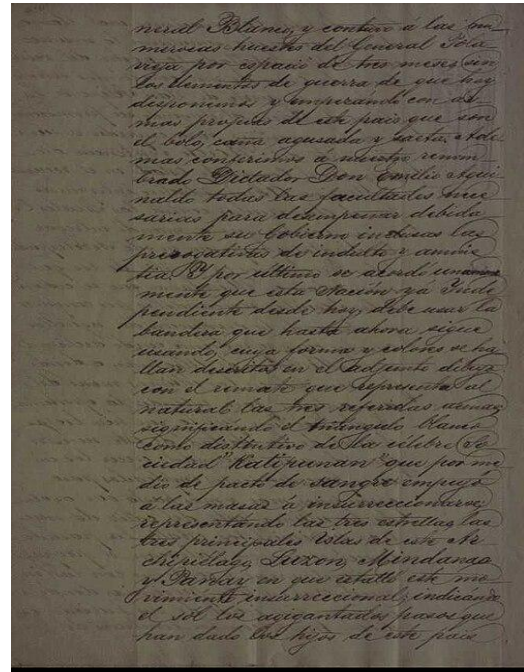 neral Blanco, y contuvo á las nu
merosas huestes del General Pola
vieja por espacio de tres meses sin
los elementos de guerra de que hoy
disponemos y empezando con ar-
mas propias de este pais que son
el bolo, caña agusada y saeta. Ade
mas conferimos á nuestro renom
brado Dictador Don Emilio Agui
naldo todas las facultades nece
sarias para desempeñar debida
mente su Gobierno inclusas las
prerogativas de indulto y amnis
tia. Y por ultimo se acordó unanime
mente que esta Nación ya Inde
pendiente desde hoy, debe usar la
bandera que hasta ahora sigue
usando, cuya forma y colores se ha
llan descritos en el adjunto dibujo
con el remate que representa al
natural las tres referidas armas
significando el triángulo blanco
como distintivo de la célebre So
ciedad "Katipunan" que por me
dio de pacto de sangre empujó
á las masas á insurreccionarse;
representando las tres estrellas las
tres principales Islas de este Ar
chipiélago, Luzon, Mindanao
y Panay en que estalló este mo
vimiento insurreccional; indicando
el sol los agigantados pasos que
han dado los hijos de este pais